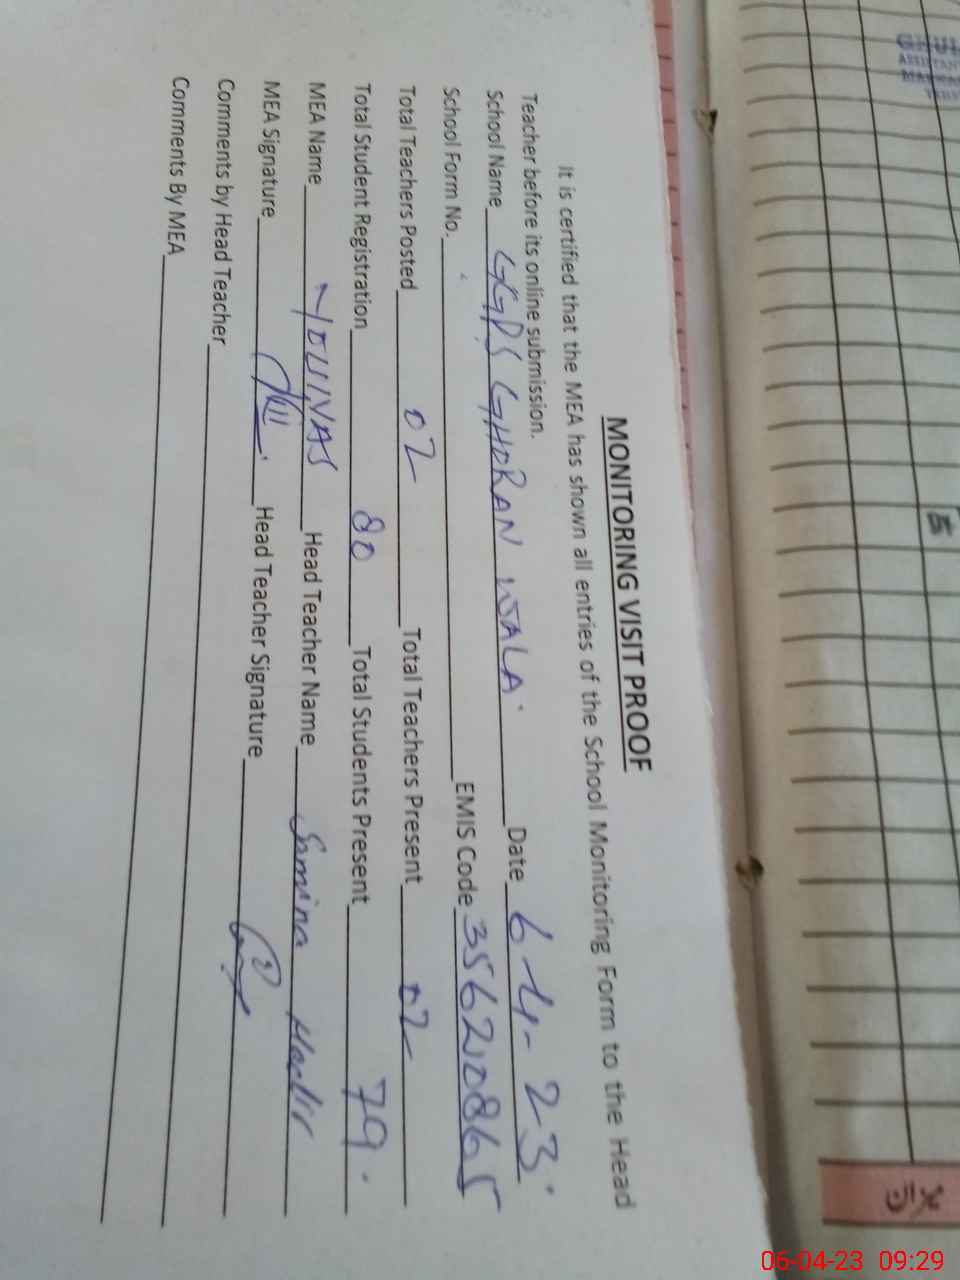 MONITORING VISIT PROOF
It is certified that the MEA has shown all entries of the School Monitoring Form to the Head
Teacher before its online submission.
School Name GGPS GHORAN WALA. Date 6-4-23.
School Form No. EMIS Code 35620865
Total Teachers Posted 02 Total Teachers Present 02
Total Student Registration 80 Total Students Present 79.
MEA Name YOUNAS Head Teacher Name Samina
MEA Signature Head Teacher Signature
Comments by Head Teacher
Comments By MEA
06-04-23 09:29